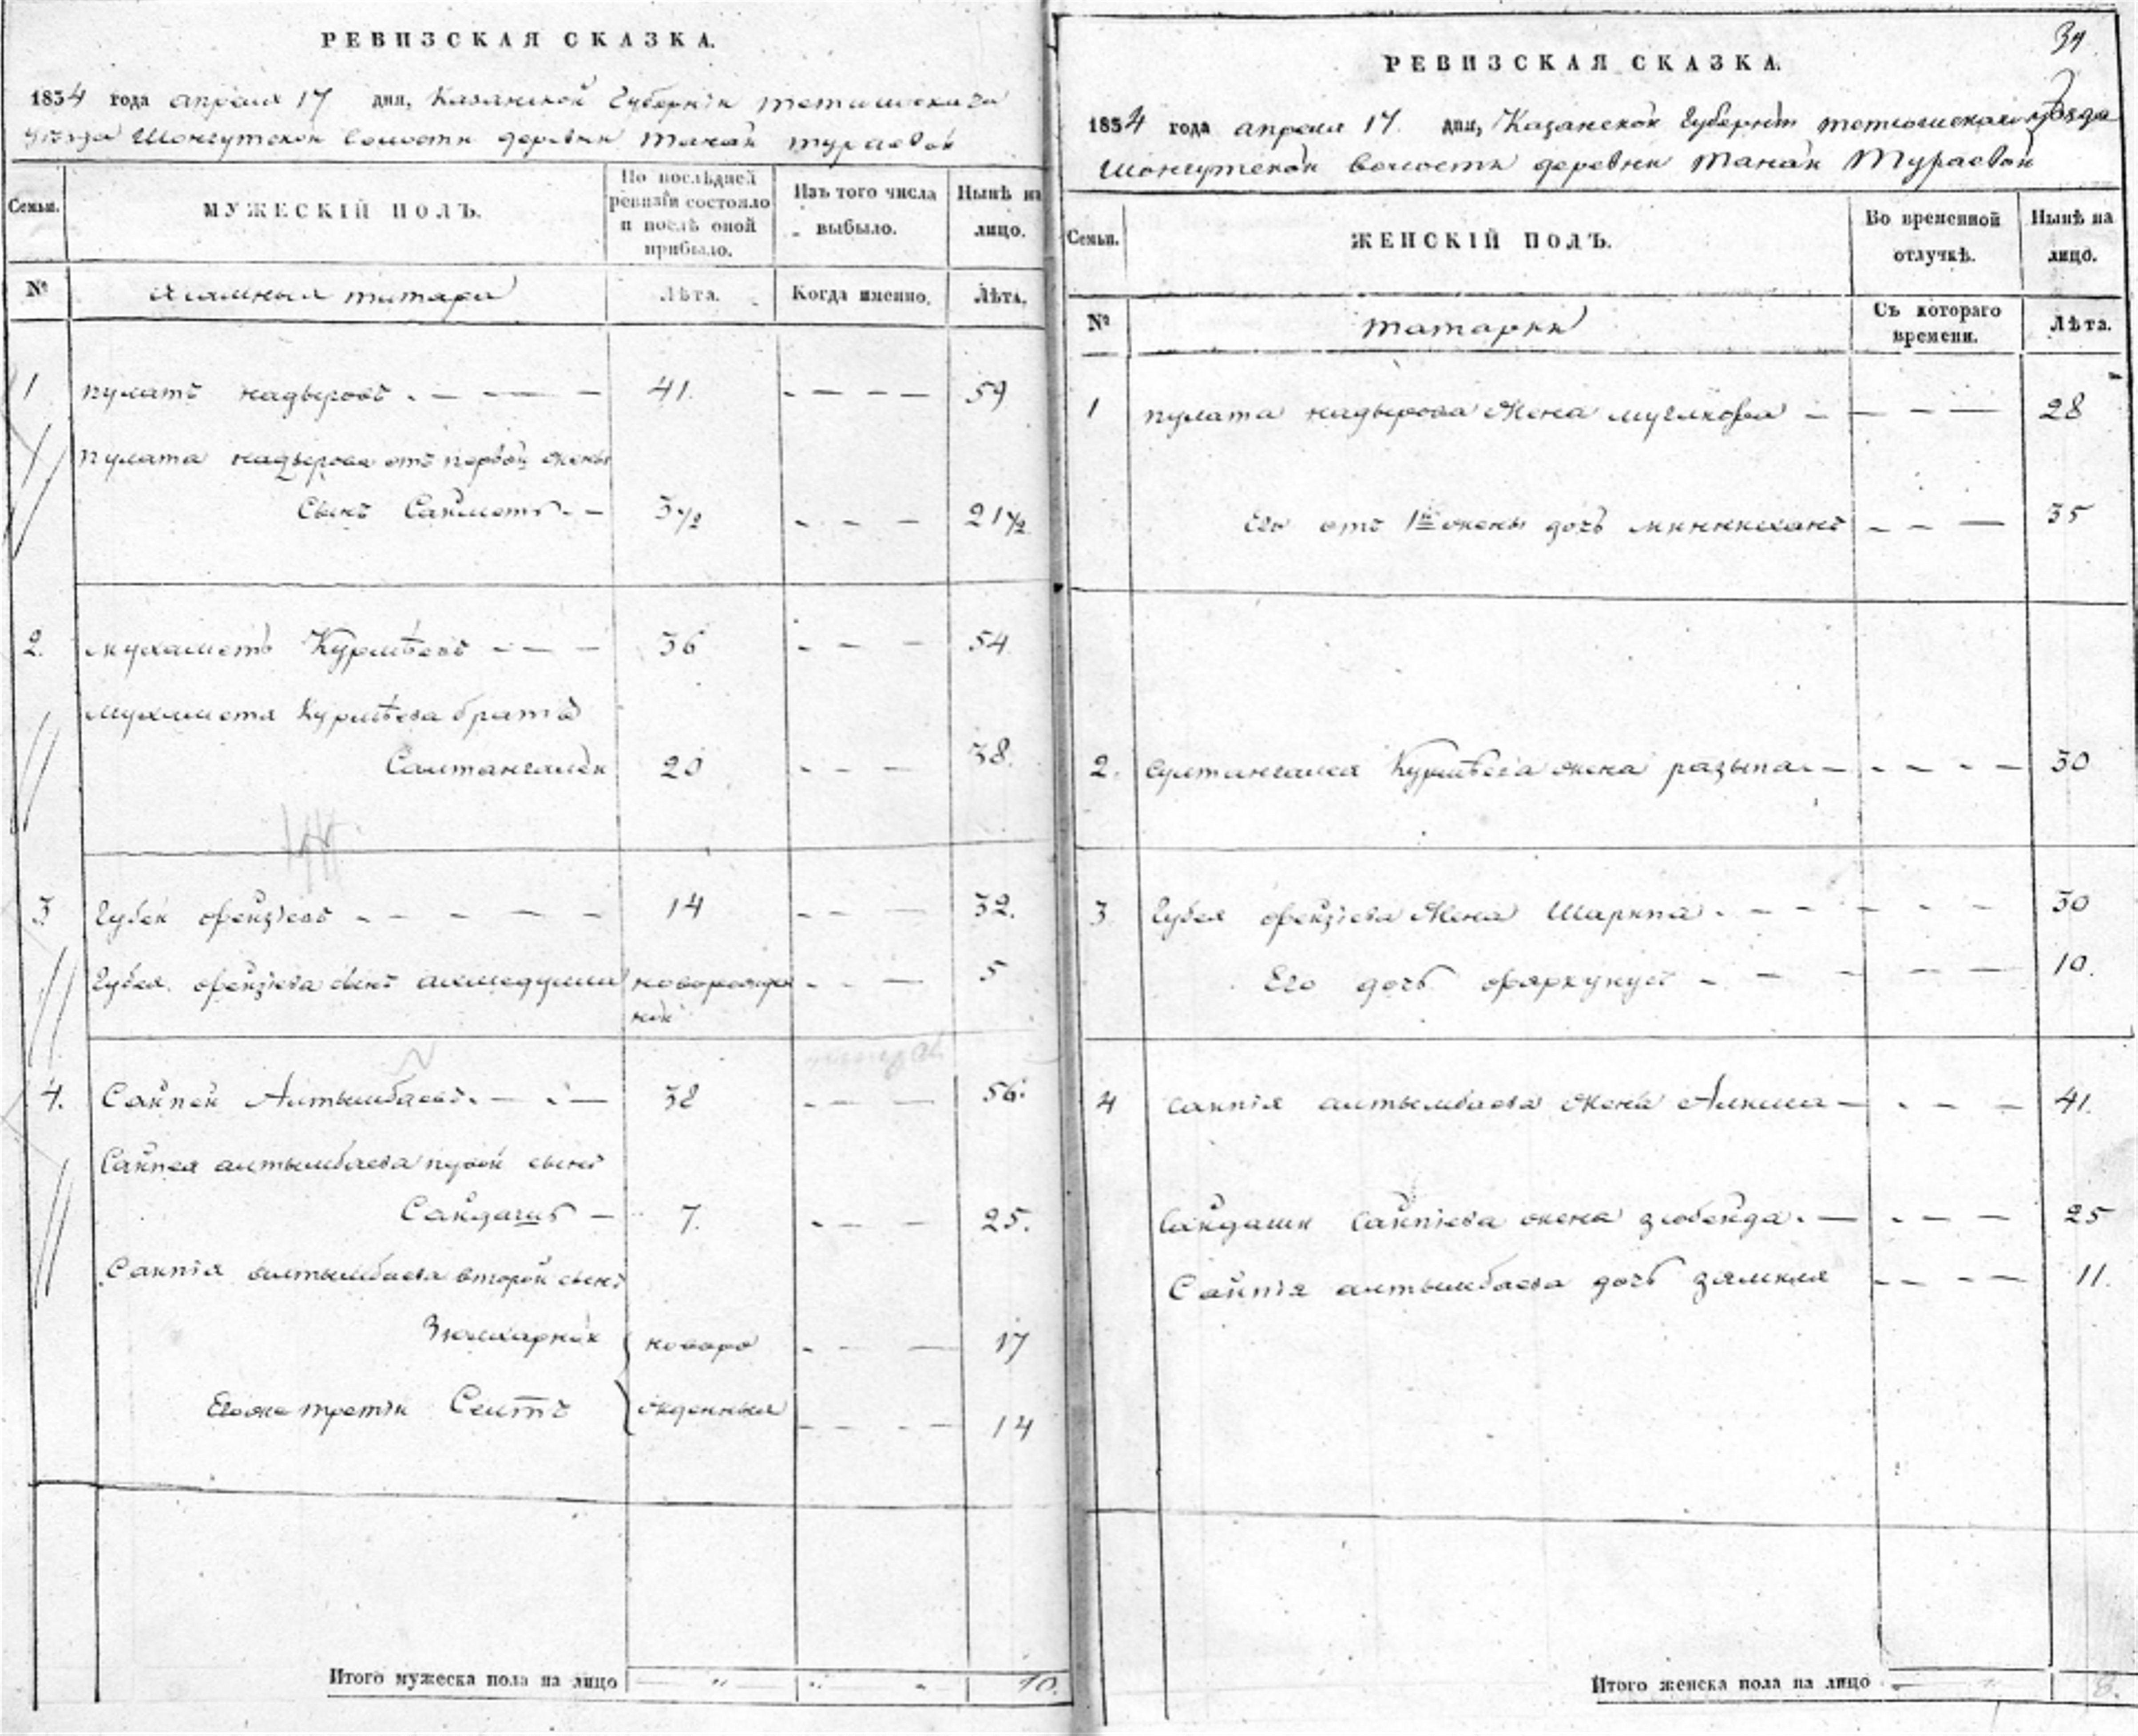 РЕВИЗСКАЯ СКАЗКА.
1854 года апреля 17 дня, Казанской Губернiи тетюшскаго
уѣзда Шонгутской волости деревни Танай тураевой
Семьи.
МУЖЕСКІЙ ПОЛЪ.
По послѣдней ревизіи состояло и послѣ оной прибыло.
Изъ того числа выбыло.
Нынѣ на лицо.
№
татара
Лѣта.
Когда именно.
Лѣта.
1 пулатъ надыровъ 41. 59
пулата надырова отъ первой жены
сынъ Сайметъ 3 1/2 21 1/2
2. мухаметъ Курмѣевъ 36 54
мухаметя Курмѣева братъ
Салтангалей 20 38.
3 Губей фейзiевъ 14 32.
Губея фейзiева сынъ ахмедулла новорожден 5
ной
4. Сайпей Алтымбаевъ 38 56.
Сайпея алтымбаева первой сынъ
Сайдашъ 7. 25.
Сайпiя алтымбаева второй сынъ
Зюлкарней новоро 17
Егоже третiй Сеитъ жденныя 14
Итого мужеска пола на лицо 10.
34
РЕВИЗСКАЯ СКАЗКА.
1854 года апреля 17. дня, Казанской Губернiи тетюшскаго уѣзда
шонгутской волости деревни Танай Тураевой
Семьи.
ЖЕНСКІЙ ПОЛЪ.
Во временной отлучкѣ.
Нынѣ на лицо.
№
татарки
Съ котораго времени.
Лѣта.
1 пулата надырова Жена 28
Его отъ 1й жены дочь миннисханъ 35
2. султангалея Курмѣева жена разыпа 30
3 Губея фейзiева Жена Шарипа 30
Его дочь фархунусъ 10.
4 сайпiя алтымбаева Жена Алкима 41.
Сайдаши сайпiева жена зюбейда 25
Сайпiя алтымбаева дочь зямиля 11.
Итого женска пола на лицо 8.